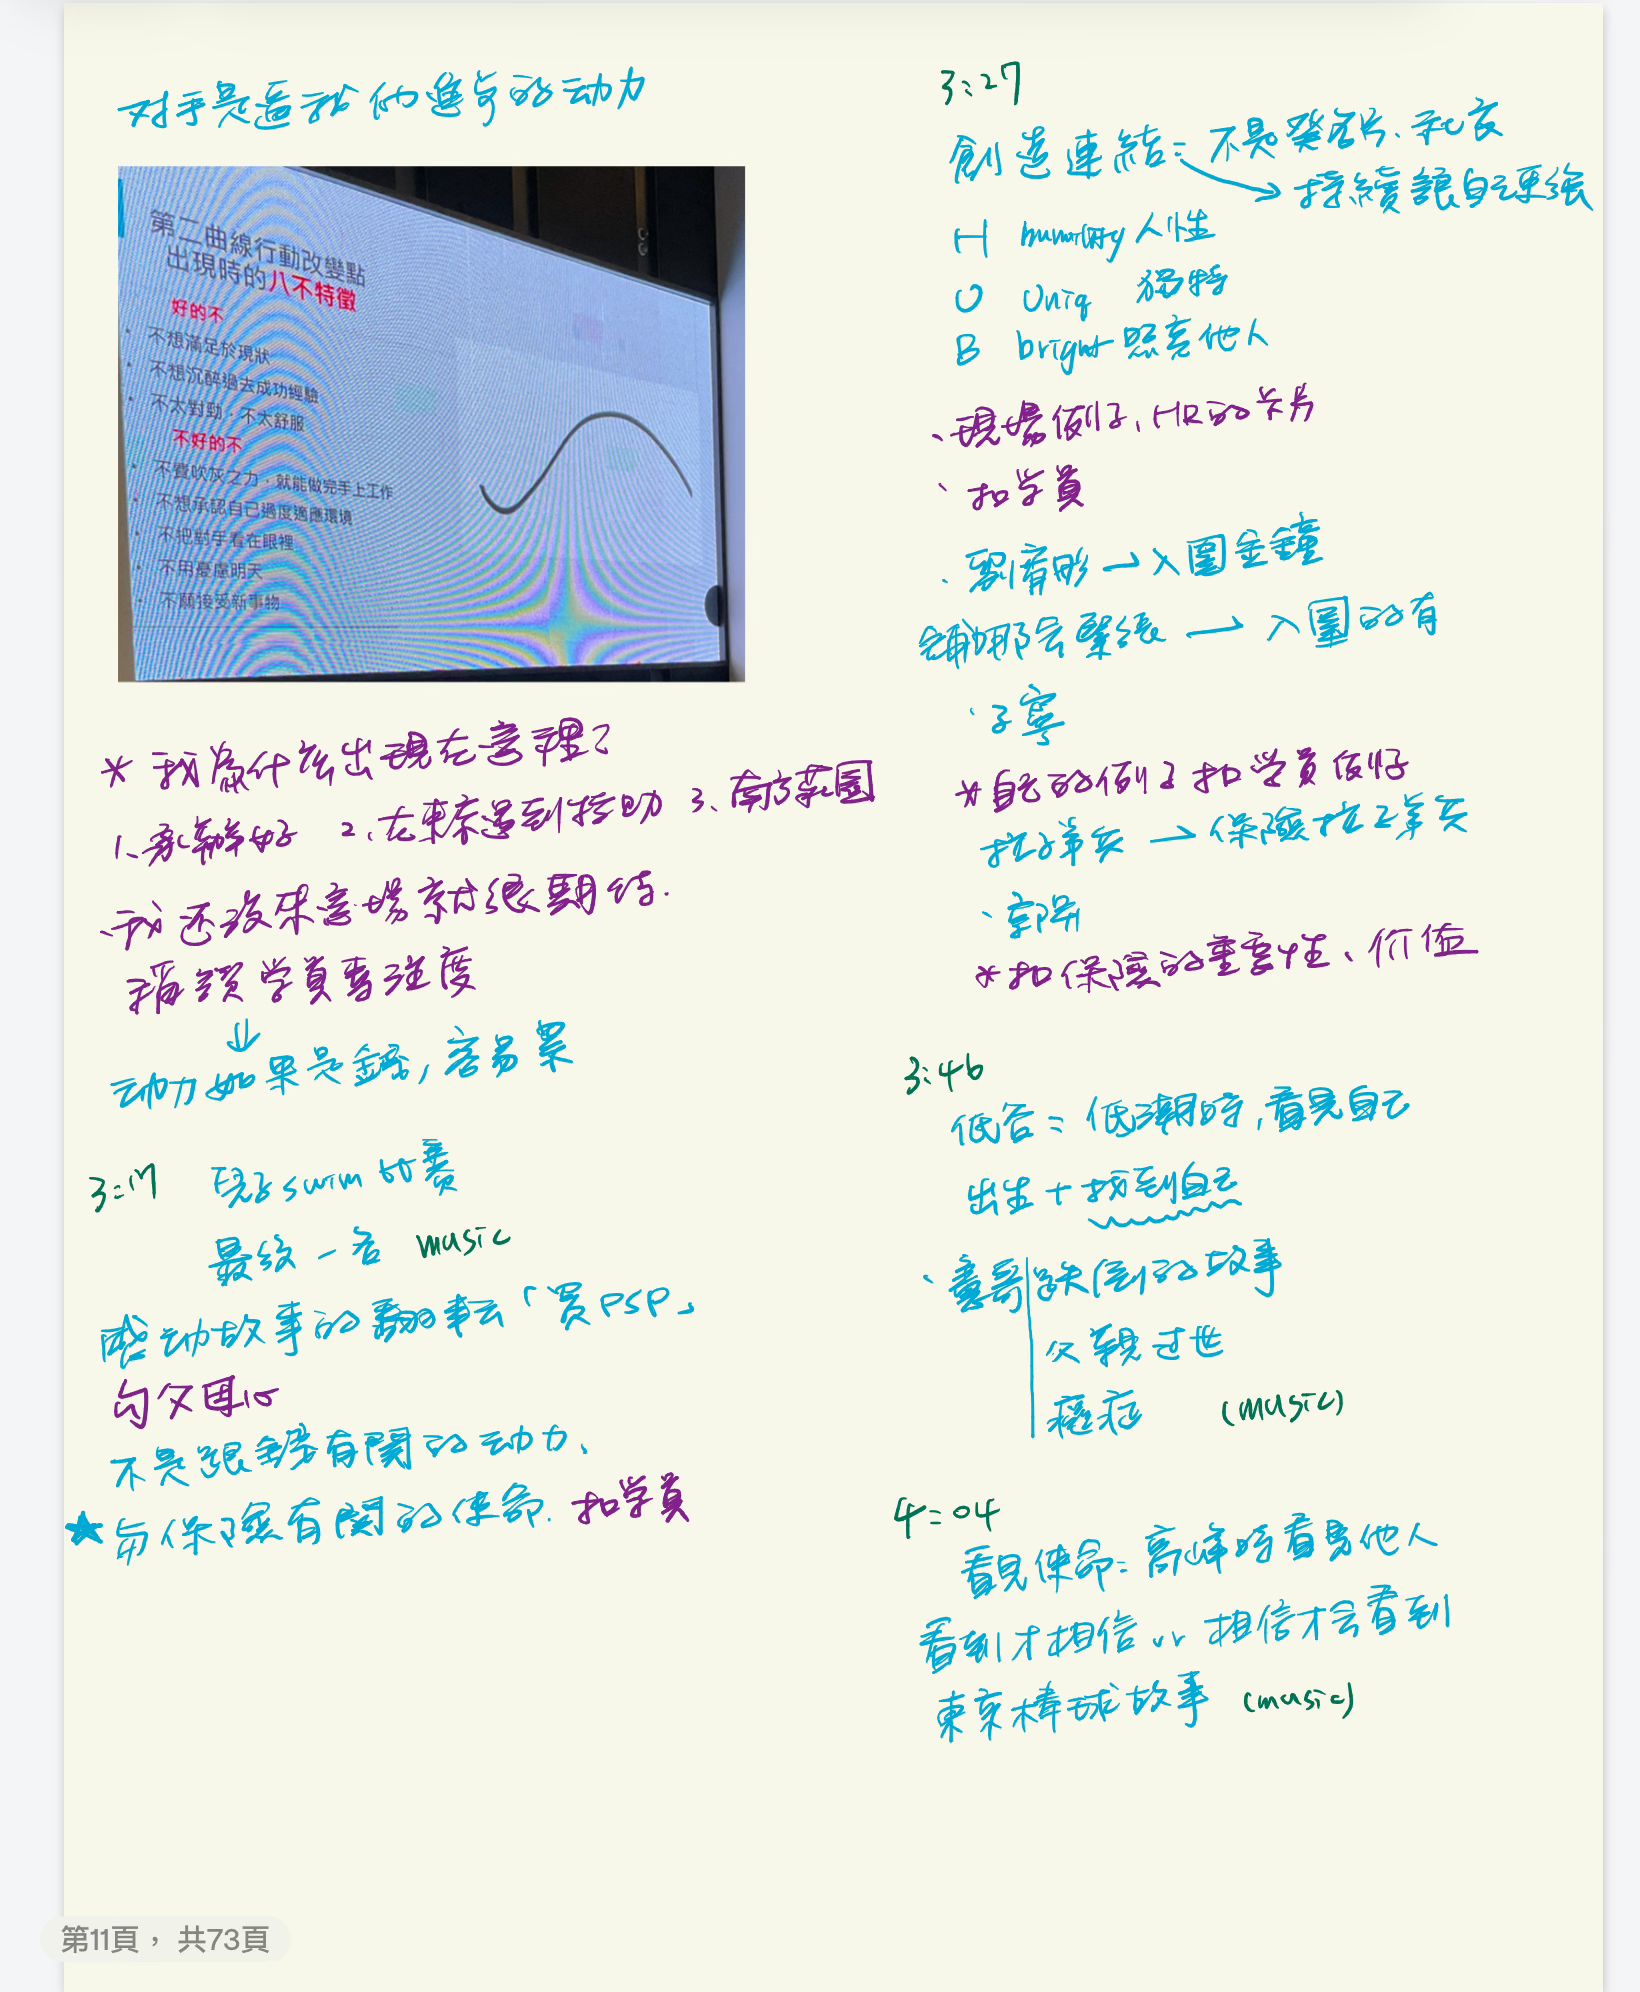 对手是逼我们進步的动力
第二曲線行動改變點
出現時的八不特徵
好的不
• 不想滿足於現狀
• 不想沉醉過去成功經驗
• 不太對勁,不太舒服
不好的不
• 不費吹灰之力,就能做完手上工作
• 不想承認自己過度適應環境
• 不把對手看在眼裡
• 不用憂慮明天
• 不願接受新事物
* 我為什
1、 2、在東京遇到 3、南方莊園
、我还没来 場就很期待.
稱讚学員專注度
↓
动力如果是錢,容易累
3:17 兒子swim比賽
最後一名 music
感动故事的翻転「買PSP」
勾
不是跟錢有関的动力、
★ 与保險有関的使命. 扣学員
3:27
創造連結: 不是發名片、
→ 持續讓自己更強
H 人性
U Uniq 獨特
B bright 照亮他人
、現場例子、HR的卡片
、扣学員
、 → 入圍金鐘
緊張 → 入圍的有
、子寧
*自己的例子扣学員例子
→ 保險
*扣保險的重要性、价值
3:46
低谷: 低潮時,看見自己
出生+找到自己
、憲哥跌倒的故事
父親过世
癌症 (music)
4:04
看見使命: 高峰時看見他人
看到才相信 vr 相信才会看到
東京棒球故事 (music)
第11頁, 共73頁